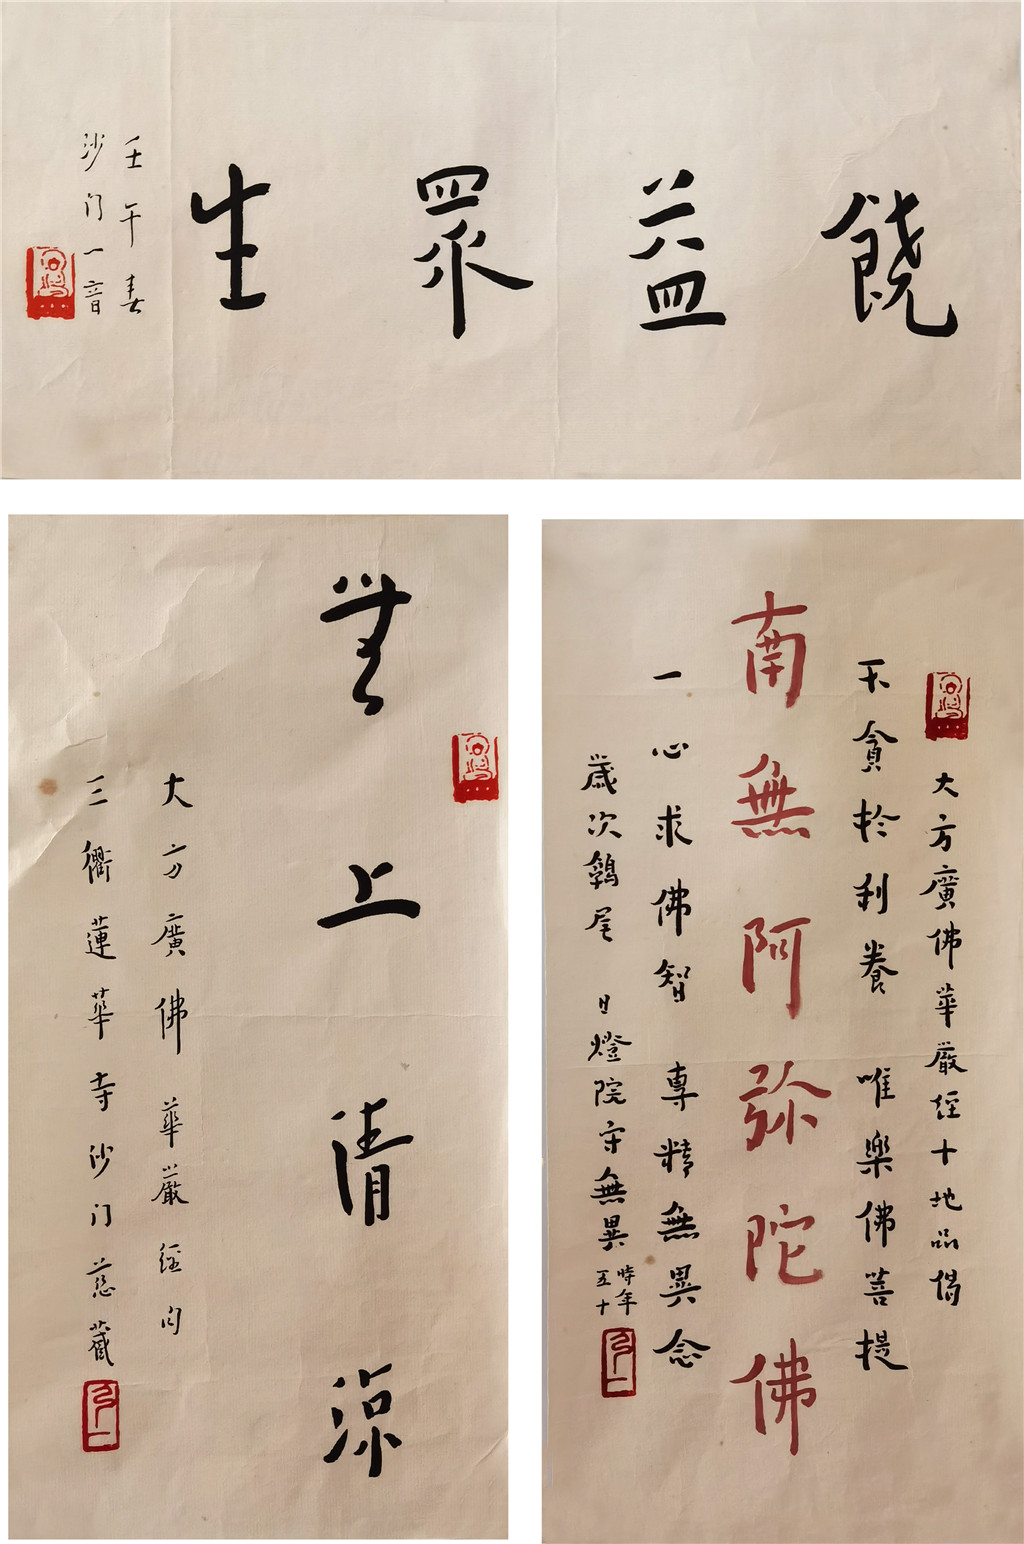 饶益眾生
壬午春
沙门一音
無上清涼
大方廣佛華嚴經句
三衢蓮華寺沙门慈藏
大方廣佛華嚴經十地品偈
不貪於利養唯樂佛菩提
南無阿弥陀佛
一心求佛智專精無異念
歲次鶉尾日燈院守無異時年五十